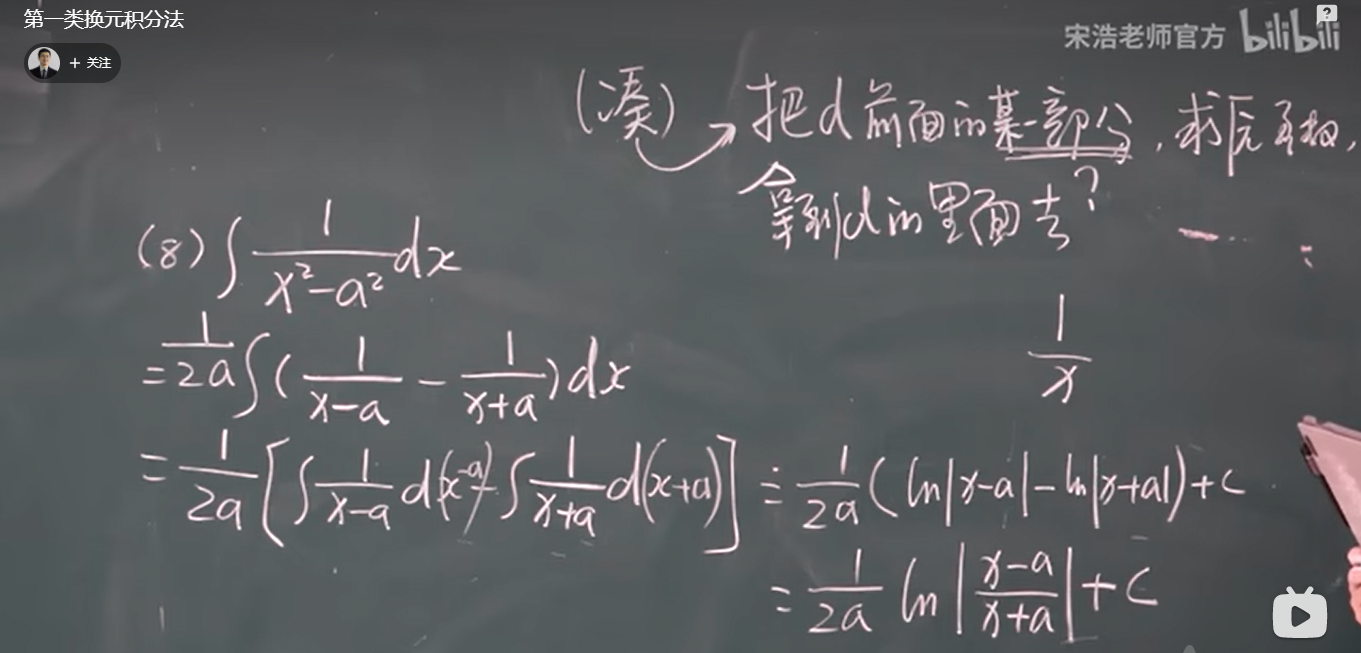 第一类换元积分法
+ 关注
宋浩老师官方 bilibili
?
(凑) 把d前面的某一部分,求原函数,
拿到d的里面去?
(8) ∫ 1/(x²-a²) dx
= 1/2a ∫ ( 1/(x-a) - 1/(x+a) ) dx
1/x
= 1/2a [ ∫ 1/(x-a) d(x-a) - ∫ 1/(x+a) d(x+a) ] = 1/2a ( ln|x-a| - ln|x+a| ) + C
= 1/2a ln | (x-a)/(x+a) | + C